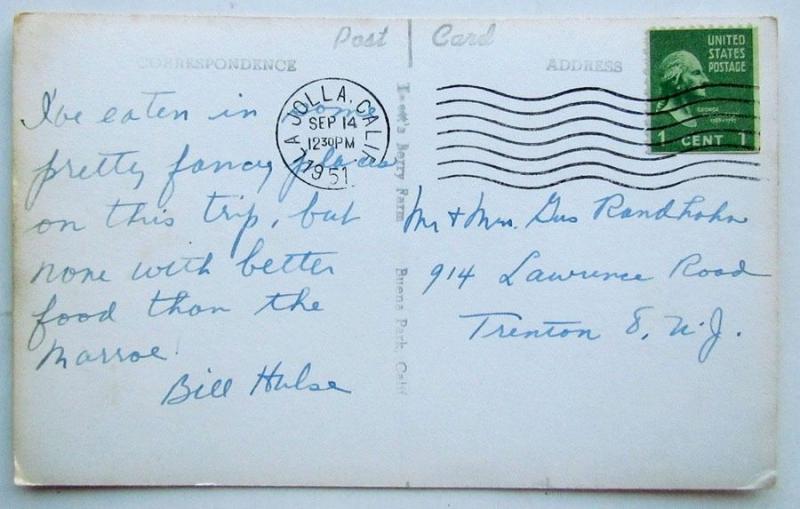 Post Card
CORRESPONDENCE
ADDRESS
I've eaten in some
pretty fancy places
on this trip, but
none with better
food than the
Marroe!
Bill Hulse
LA JOLLA, CALIF.
SEP 14
12 30 PM
1951
Berry Farm Buena Park, Calif
UNITED
STATES
POSTAGE
GEORGE
1 CENT 1
Mr + Mrs. Gus Randhahn
914 Lawrence Road
Trenton 8, N.J.